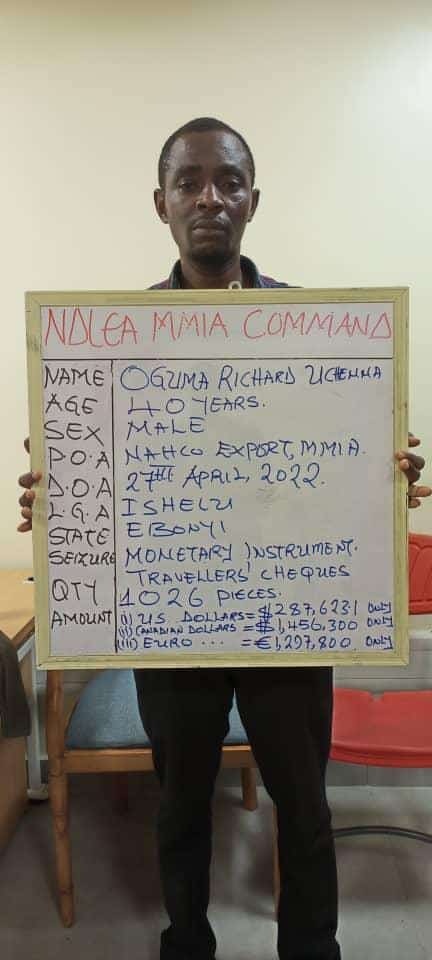 NDLEA MMIA COMMAND
NAME OGUMA RICHARD UCHENNA
AGE 40 YEARS.
SEX MALE
P.O.A NAHCO EXPORT, MMIA.
D.O.A 27TH APRIL, 2022.
L.G.A ISHELU
STATE EBONYI
SEIZURE MONETARY INSTRUMENT.
TRAVELLERS' CHEQUES
QTY 1026 PIECES.
AMOUNT (i) U.S DOLLARS = $ ONLY
(ii) CANADIAN DOLLARS = $1,456,300 ONLY
(iii) EURO ... = €1,297,800 ONLY